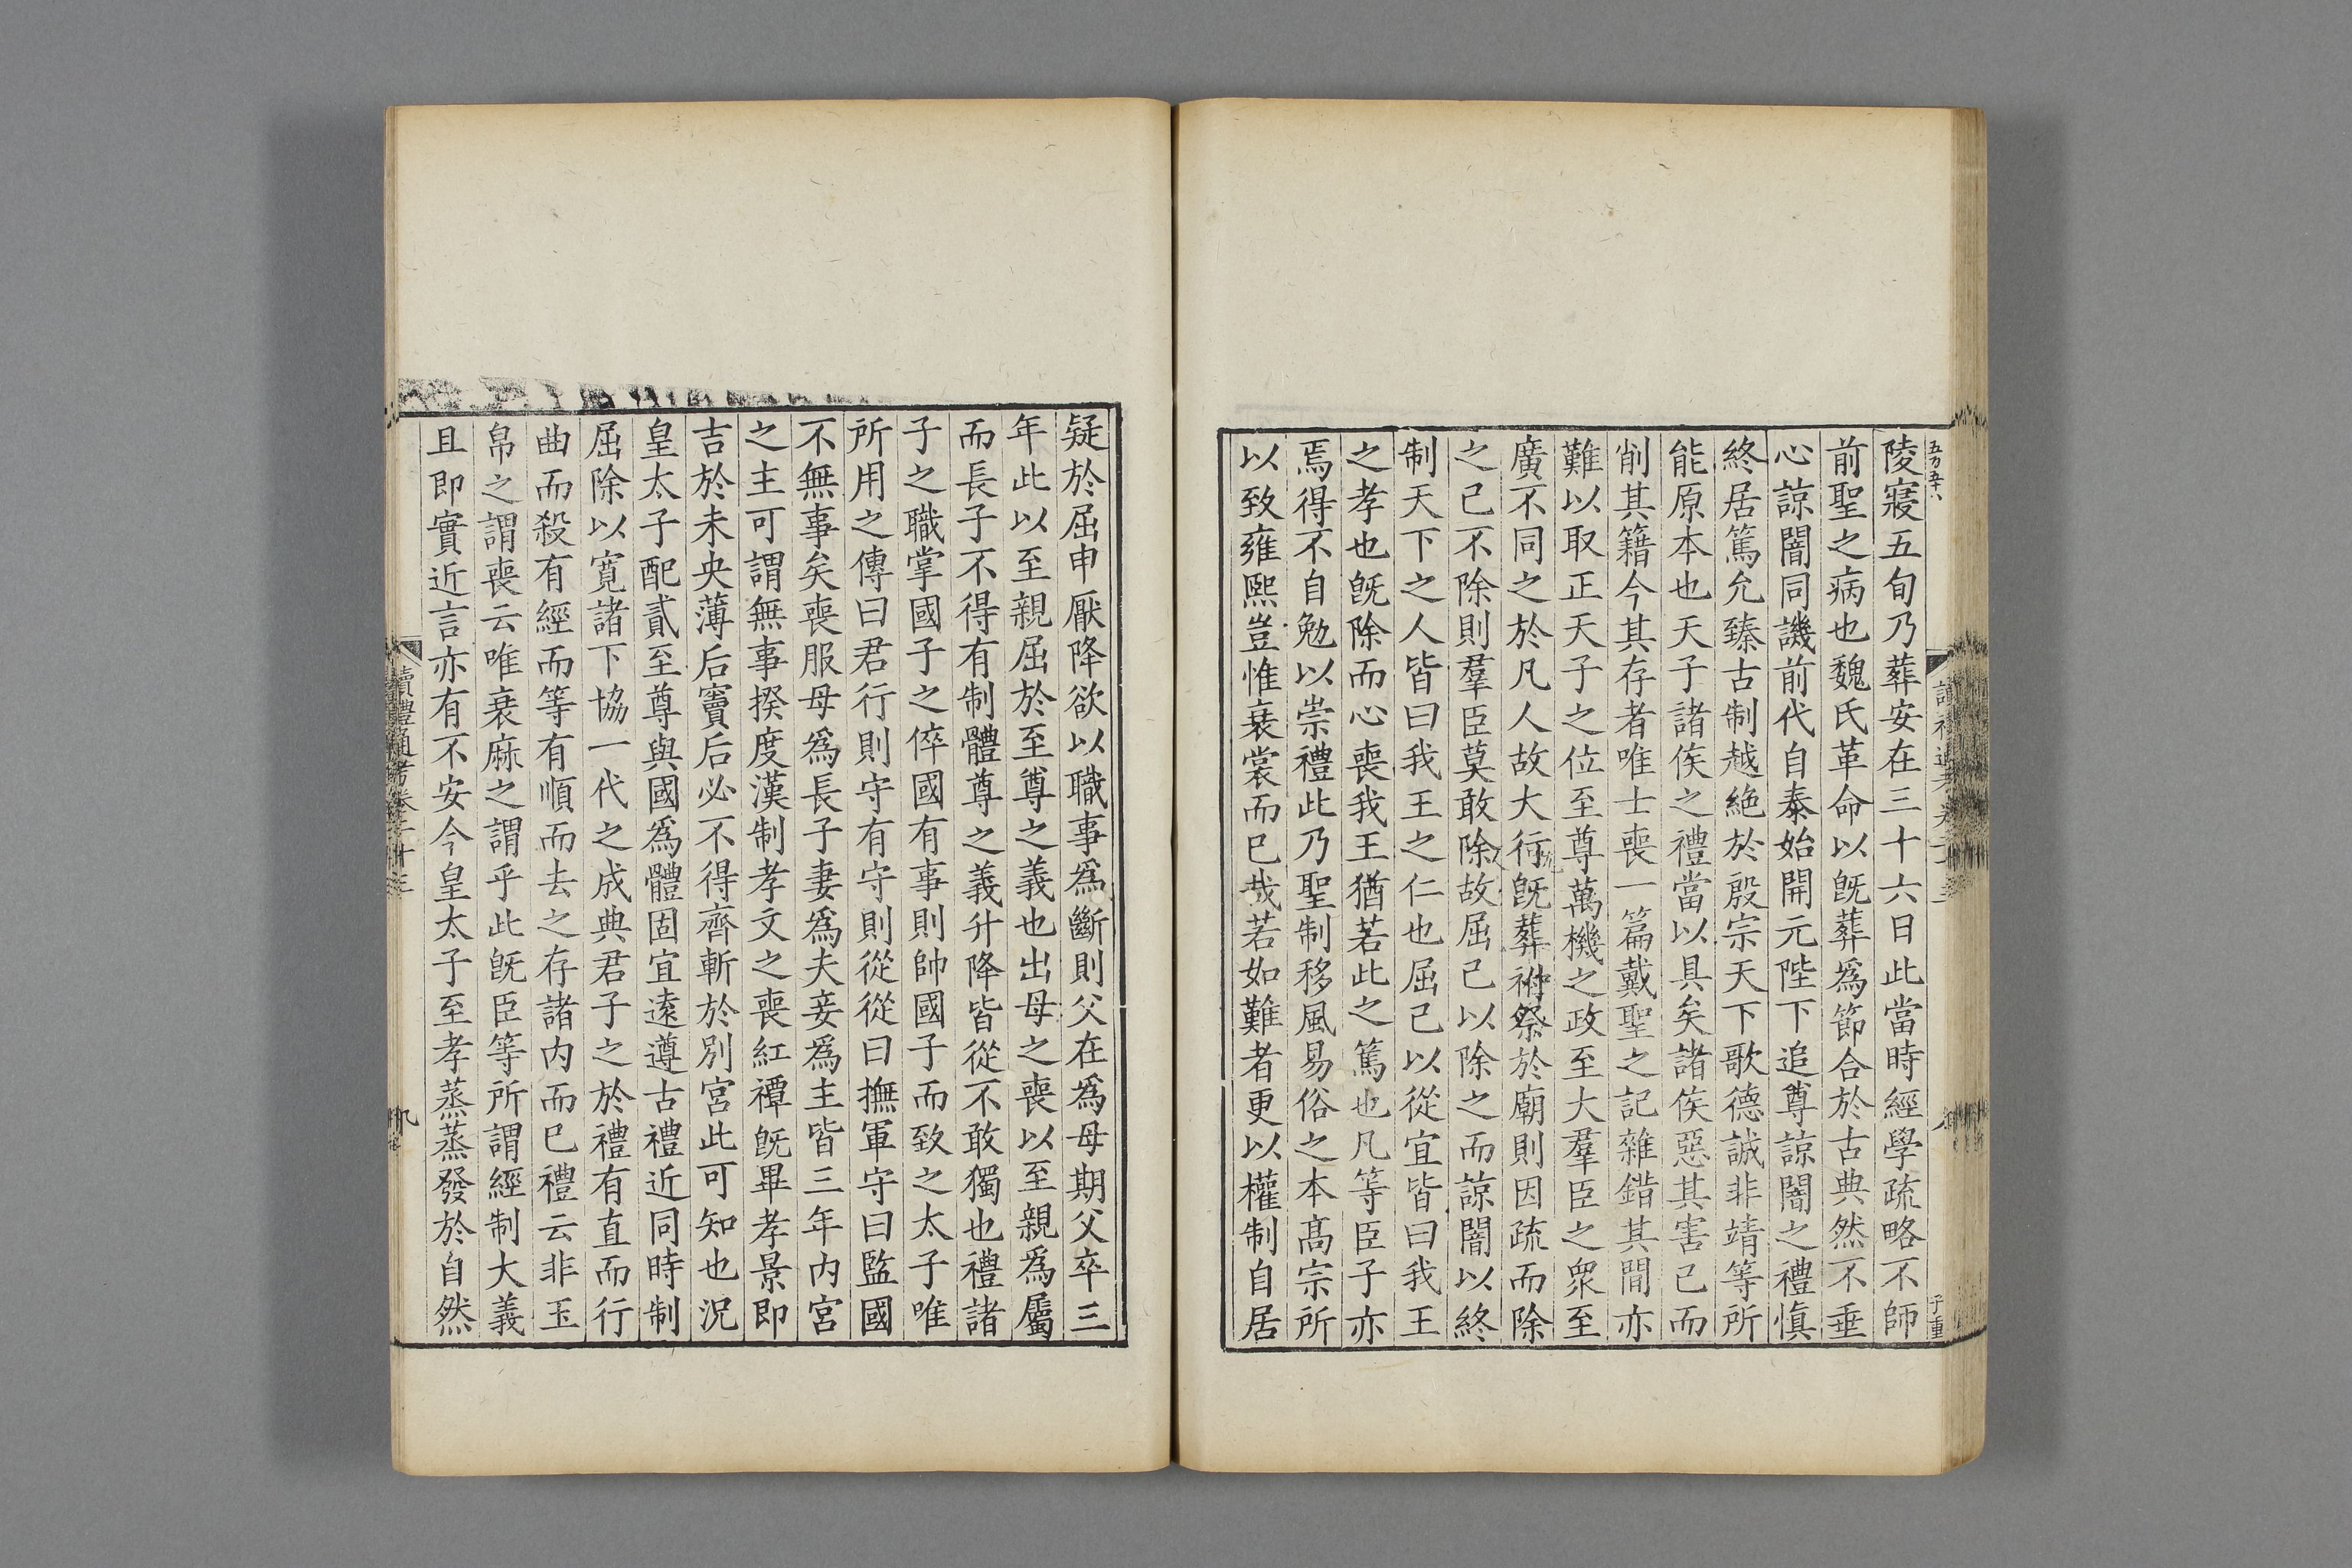 陵寢五旬乃葬安在三十六日此當時經學疏略不師
前聖之病也魏氏革命以旣葬爲節合於古典然不垂
心諒闇同譏前代自泰始開元陛下追尊諒闇之禮愼
終居篤允臻古制越絶於殷宗天下歌德誠非靖等所
能原本也天子諸侯之禮當以具矣諸侯惡其害己而
削其籍今其存者唯士喪一篇戴聖之記雜錯其間亦
難以取正天子之位至尊萬機之政至大羣臣之衆至
廣不同之於凡人故大行旣葬祔祭於廟則因疏而除
之己不除則羣臣莫敢除故屈己以除之而諒闇以終
制天下之人皆曰我王之仁也屈己以從宜皆曰我王
之孝也旣除而心喪我王猶若此之篤也凡等臣子亦
焉得不自勉以崇禮此乃聖制移風易俗之本高宗所
以致雍熙豈惟衰裳而已哉若如難者更以權制自居
疑於屈申厭降欲以職事爲斷則父在爲母期父卒三
年此以至親屈於至尊之義也出母之喪以至親爲屬
而長子不得有制體尊之義升降皆從不敢獨也禮諸
子之職掌國子之倅國有事則帥國子而致之太子唯
所用之傳曰君行則守有守則從從曰撫軍守曰監國
不無事矣喪服母爲長子妻爲夫妾爲主皆三年内宮
之主可謂無事揆度漢制孝文之喪紅禫旣畢孝景即
吉於未央薄后竇后必不得齊斬於別宮此可知也況
皇太子配貳至尊與國爲體固宜遠遵古禮近同時制
屈除以寬諸下協一代之成典君子之於禮有直而行
曲而殺有經而等有順而去之存諸内而已禮云非玉
帛之謂喪云唯衰麻之謂乎此旣臣等所謂經制大義
且即實近言亦有不安今皇太子至孝蒸蒸發於自然
讀禮通考卷二十三